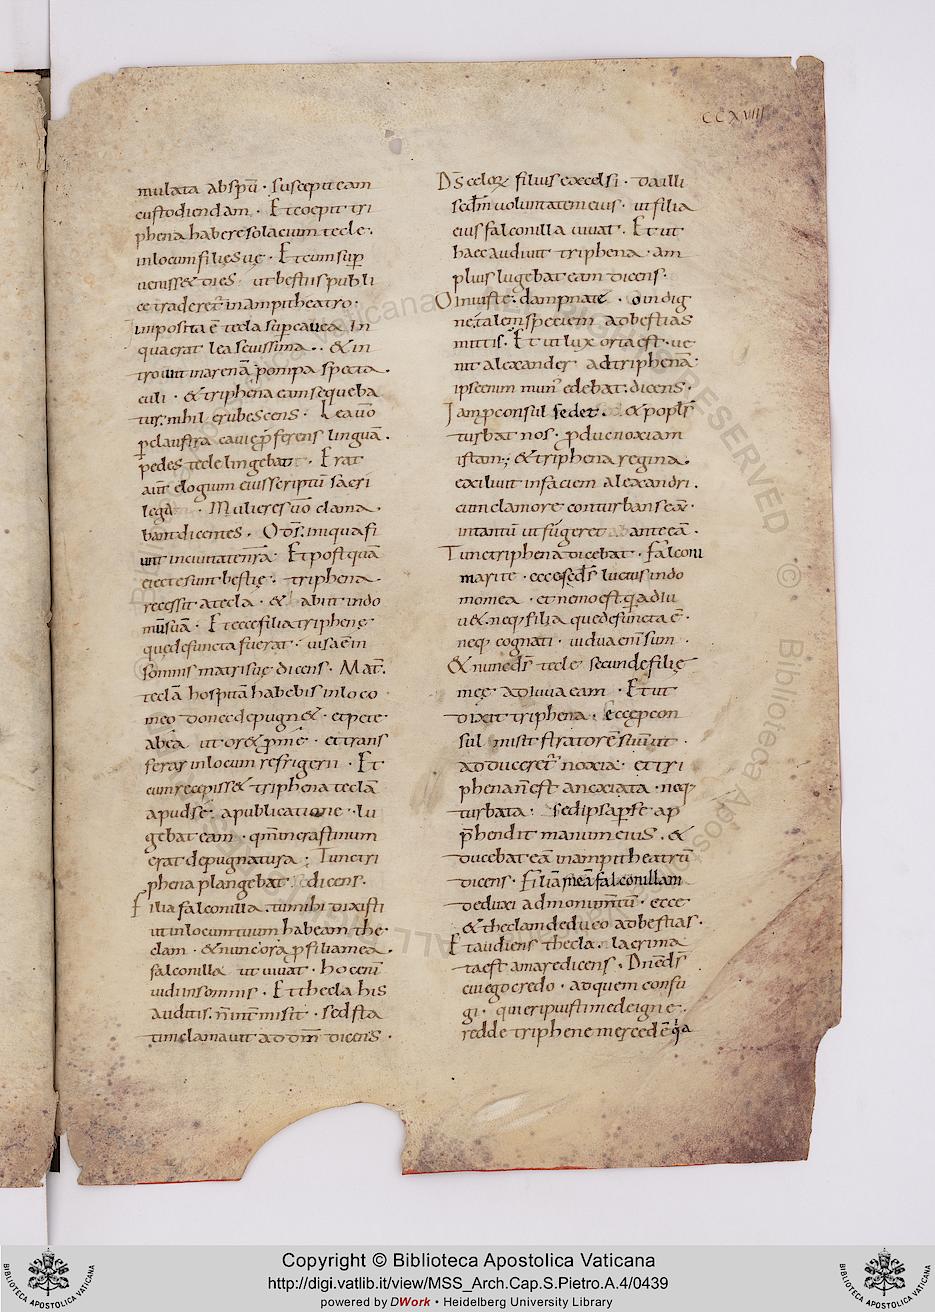 CCXVIII
mulata abspū · suscepit eam
custodiendam · Et coepit tri
phena habere solacium tecle ·
in locum filię suę · Et cum sup
venisset dies · ut bestiis publi
ce traderet̄ in ampitheatro ·
imposita ē tecla sup cavea In
qua erat lea sevissima · & in
pedes tecle lingebat · Erat
aūt elogium eius scriptū sacri
legii · Mulieres ūo clama
bant dicentes · O dS̄ iniqua fi
unt in civitate nrā Et post quā
eiecte sunt bestię · triphena
recessit a tecla · & abiit in do
mū suā · Et ecce filia triphenę
que defuncta fuerat · visa ē in
somnis matri suę dicens · Mat̄
teclā hospitā habebis in loco
meo donec depugn& · et pete
ab ea ut or& p me · et trans
ferar in locum refrigerii · Et
cum recepiss& triphena teclā
apud se · a publicatione · lu
gebat eam · qm in crastinum
erat depugnatura ; Tunc tri
phena plangebat dicens ·
Filia falconilla tu mihi dixisti
ut in locum tuum habeam the
clam · & nunc ora p filia mea
falconilla ut vivat · hoc enī
vidi in somnis · Et thecla his
auditis · sed sta
tim clamavit ad dm̄ dicens ·
DS̄ celoꝝ filius excelsi · da illi
scdm voluntatem eius · ut filia
eius falconilla vivat · Et ut
haec audivit triphena · am
plius lugebat eam dicens ·
O iniuste dampnate · o indig
ne talem speciem ad bestias
mittis · Et ut lux orta est · ve
nit alexander ad triphenā
ipse enim mun̄ edebat · dicens ·
Iam pconsul sedet · & poplS̄
turbat nos · pduc noxiam
istam ; & triphena regina
exiluit in faciem alexandri ·
cum clamore conturbans eā
in tantū ut fugeret ab ante eā ·
Tunc triphena dicebat · falconi
mo mea · et nemo est q adiu
v& · neq filia que defuncta ē ·
neq cognati · vidua enī sum ·
& nunc dS̄ tecle secunde filię
meę adiuva eam · Et ut
dixit triphena · ecce pcon
sul misit stratorē suū ut
adduceret̄ noxia · et tri
phena n̄ est anexiata · neq
turbata · sed ipsa p se ap
phendit manum eius · &
ducebat eā in ampitheatrū
dicens · Filiā meā falconillam
deduxi ad monumtū · ecce
& theclam deduco ad bestias ·
Et audiens thecla · lacrima
ta est amare dicens · Dne dS̄
cui ego credo · ad quem confu
gi · qui eripuisti me de igne ·
redde triphene mercedē qa
Copyright © Biblioteca Apostolica Vaticana
http://digi.vatlib.it/view/MSS_Arch.Cap.S.Pietro.A.4/0439
powered by DWork • Heidelberg University Library